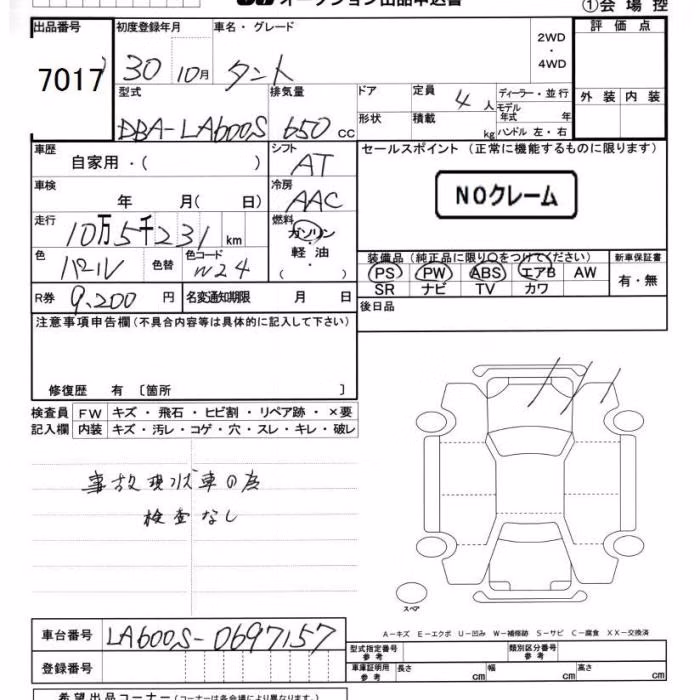 オークション出品申込書
①会場控
出品番号 初度登録年月 車名・グレード 2WD・4WD 評価点
7017 30 10月 タント
型式 排気量 ドア 定員 4人 ディーラー・並行 外装 内装
DBA-LA600S 650cc 形状 積載 kg モデル年式 年 ハンドル 左・右
車歴 シフト セールスポイント(正常に機能するものに限ります)
自家用・( ) AT
車検 冷房 NOクレーム
年 月( 日) AAC
走行 燃料
10万5千231km ガソリン
色 色替 色コード 軽油
パール W24 ・( )
装備品(純正品に限り○をつけてください) 新車保証書
PS PW ABS エアB AW 有・無
SR ナビ TV カワ
R券 9,200円 名変通知期限 月 日 後日品
注意事項申告欄(不具合内容等は具体的に記入して下さい)
修復歴 有 [箇所 ]
検査員 FW キズ・飛石・ヒビ割・リペア跡・×要
記入欄 内装 キズ・汚レ・コゲ・穴・スレ・キレ・破レ
事故現状車の為
検査なし
スペア
A-キズ E-エクボ U-凹み W-補修跡 S-サビ C-腐食 XX-交換済
車台番号 LA600S-0697157
型式指定番号 参考 類別区分番号 参考
登録番号 車庫証明用 参考 長さ cm 幅 cm 高さ cm
希望出品コーナー(コーナーは各会場により異なります。)